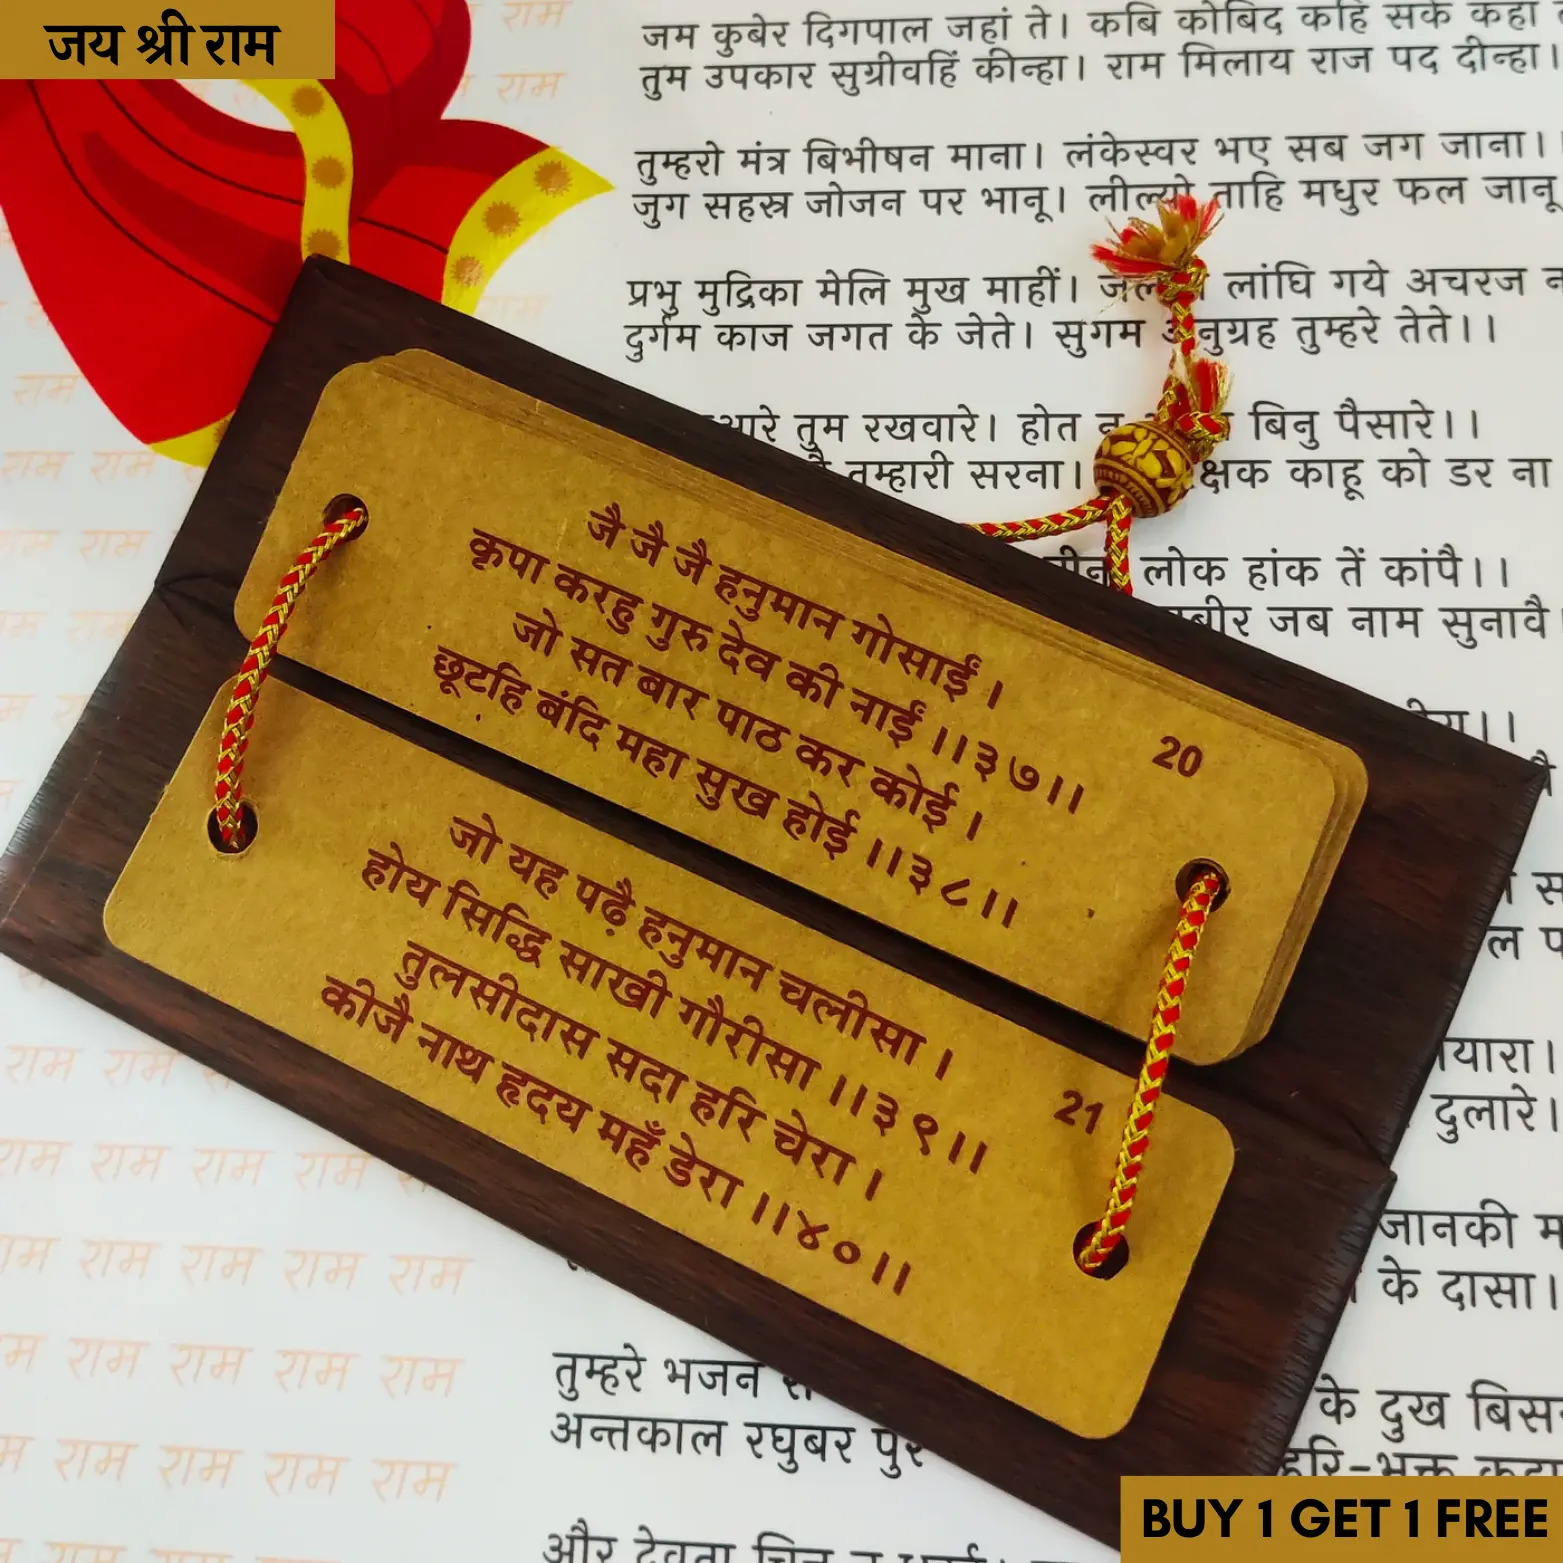 जय श्री राम
जम कुबेर दिगपाल जहां ते। कबि कोबिद कहि सके कहां
तुम उपकार सुग्रीवहिं कीन्हा। राम मिलाय राज पद दीन्हा।
तुम्हरो मंत्र बिभीषन माना। लंकेस्वर भए सब जग जाना।।
जुग सहस्त्र जोजन पर भानू। लील्यो ताहि मधुर फल जानू
प्रभु मुद्रिका मेलि मुख माहीं। लांघि गये अचरज
दुर्गम काज जगत के जेते। सुगम अनुग्रह तुम्हरे तेते।।
तुम रखवारे। होत न बिनु पैसारे।।
तुम्हारी सरना। काहू को डर ना
लोक हांक तें कांपै।।
जब नाम सुनावै
जै जै जै हनुमान गोसाईं ।
कृपा करहु गुरु देव की नाईं ।।३७।।
जो सत बार पाठ कर कोई ।
छूटहि बंदि महा सुख होई ।।३८।।
20
जो यह पढ़ै हनुमान चलीसा ।
होय सिद्धि साखी गौरीसा ।।३९।।
तुलसीदास सदा हरि चेरा ।
कीजै नाथ हृदय महँ डेरा ।।४०।।
21
दुलारे।
जानकी
के दासा।
तुम्हरे भजन
के दुख
अन्तकाल रघुबर पुर
और देवता
राम राम
राम राम
राम राम राम
राम राम राम राम
राम राम राम राम
राम राम राम राम
BUY 1 GET 1 FREE